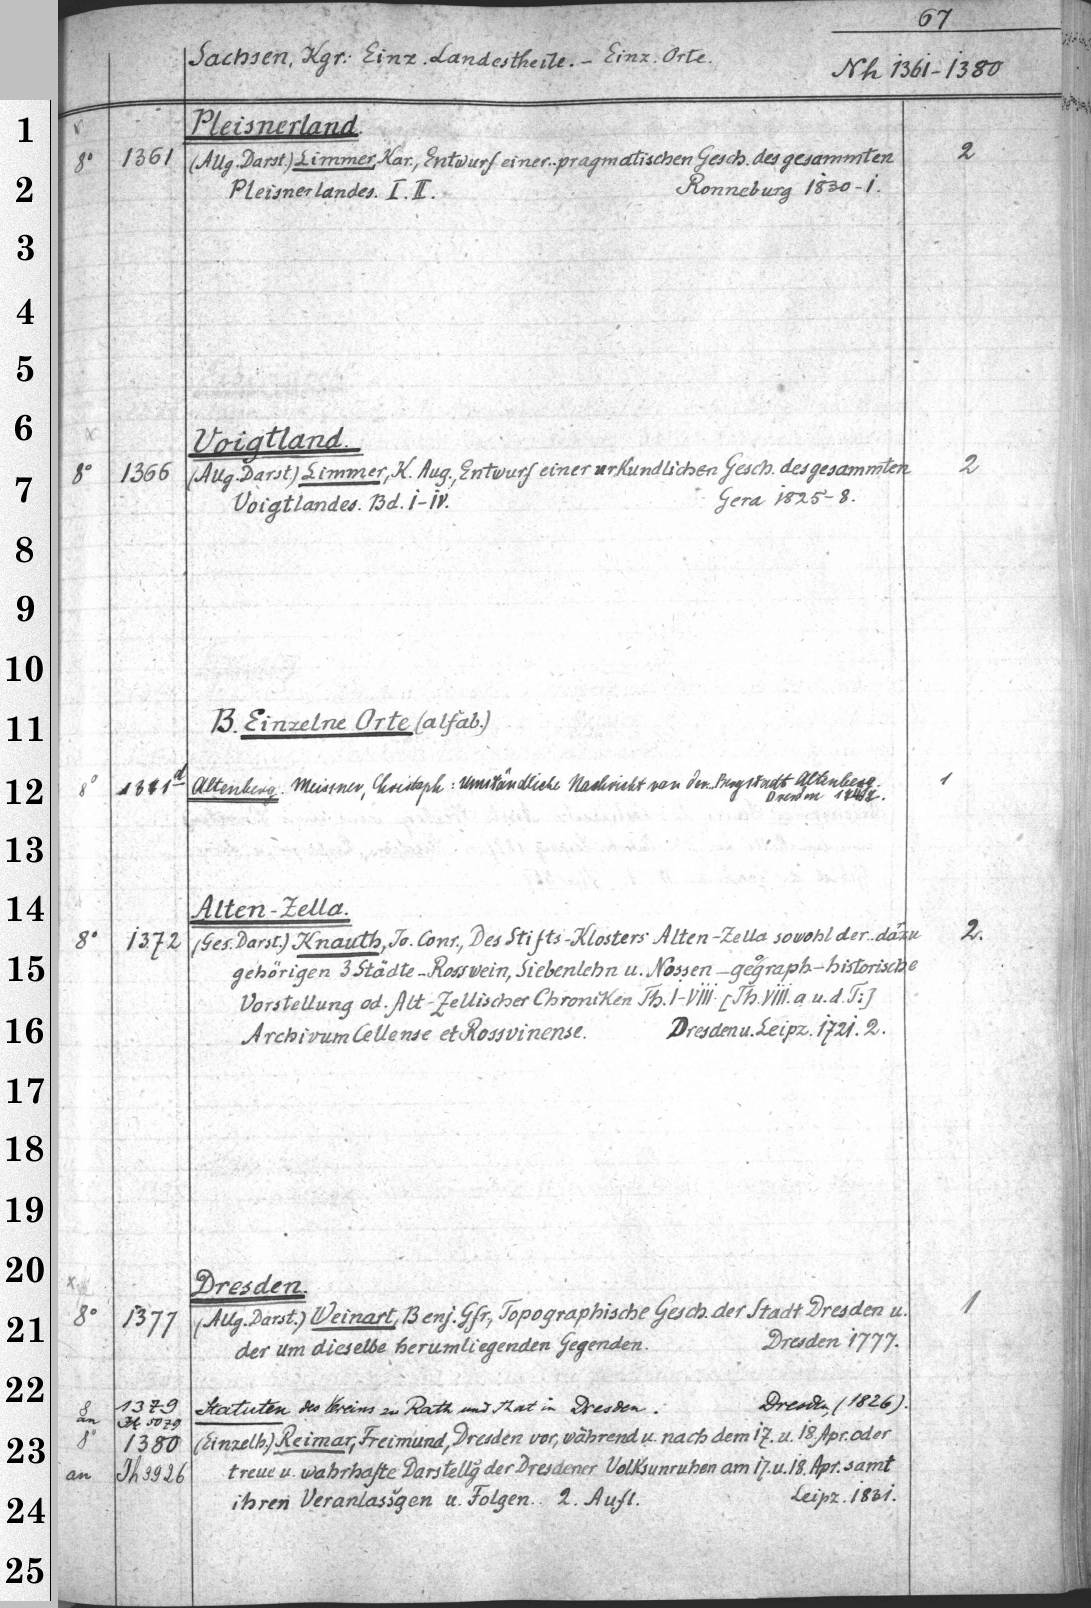 67
Sachsen, Kgr: Einz. Landestheile. - Einz. Orte.
Nh 1361-1380
1
Pleisnerland.
8° 1361 (Allg. Darst.) Limmer, Kar., Entwurf einer.. pragmatischen Gesch. des gesammten 2
2
Pleisnerlandes. I. II. Ronneburg 1830-1.
3
4
5
6
Voigtland.
8° 1366 (Allg. Darst.) Limmer, K. Aug., Entwurf einer urkundlichen Gesch. des gesammten 2
7
Voigtlandes. Bd. I-IV. Gera 1825-8.
8
9
10
11
B. Einzelne Orte (alfab.)
12
8° 1371d Altenberg. Meissner, Christoph: Umständliche Nachricht von der.. Bergstadt Altenberg. 1
Dresden
13
14
Alten-Zella.
8° 1372 (Ges. Darst.) Knauth, Jo. Conr., Des Stifts-Klosters Alten-Zella sowohl der.. dazu 2.
15
gehörigen 3 Städte - Rosswein, Siebenlehn u. Nossen - geograph-historische
Vorstellung od. Alt-Zellischer Chroniken Th. I-VIII. [Th. VIII. a u. d. T:]
16
Archivum Cellense et Rossvinense. Dresden u. Leipz. 1721. 2.
17
18
19
20
Dresden.
8° 1377 (Allg. Darst.) Weinart, Benj. Gfr., Topographische Gesch. der Stadt Dresden u. 1
21
der um dieselbe herumliegenden Gegenden. Dresden 1777.
22
8 1379 Statuten des Vereins zu Rath und That in Dresden. Dresden, (1826).
an 5079
23
8° 1380 (Einzelh.) Reimar, Freimund, Dresden vor, während u. nach dem 17. u. 18. Apr. oder
an Jh 3926 treue u. wahrhafte Darstellg der Dresdener Volksunruhen am 17. u. 18. Apr. samt
24
ihren Veranlassgen u. Folgen. 2. Aufl. Leipz. 1831.
25